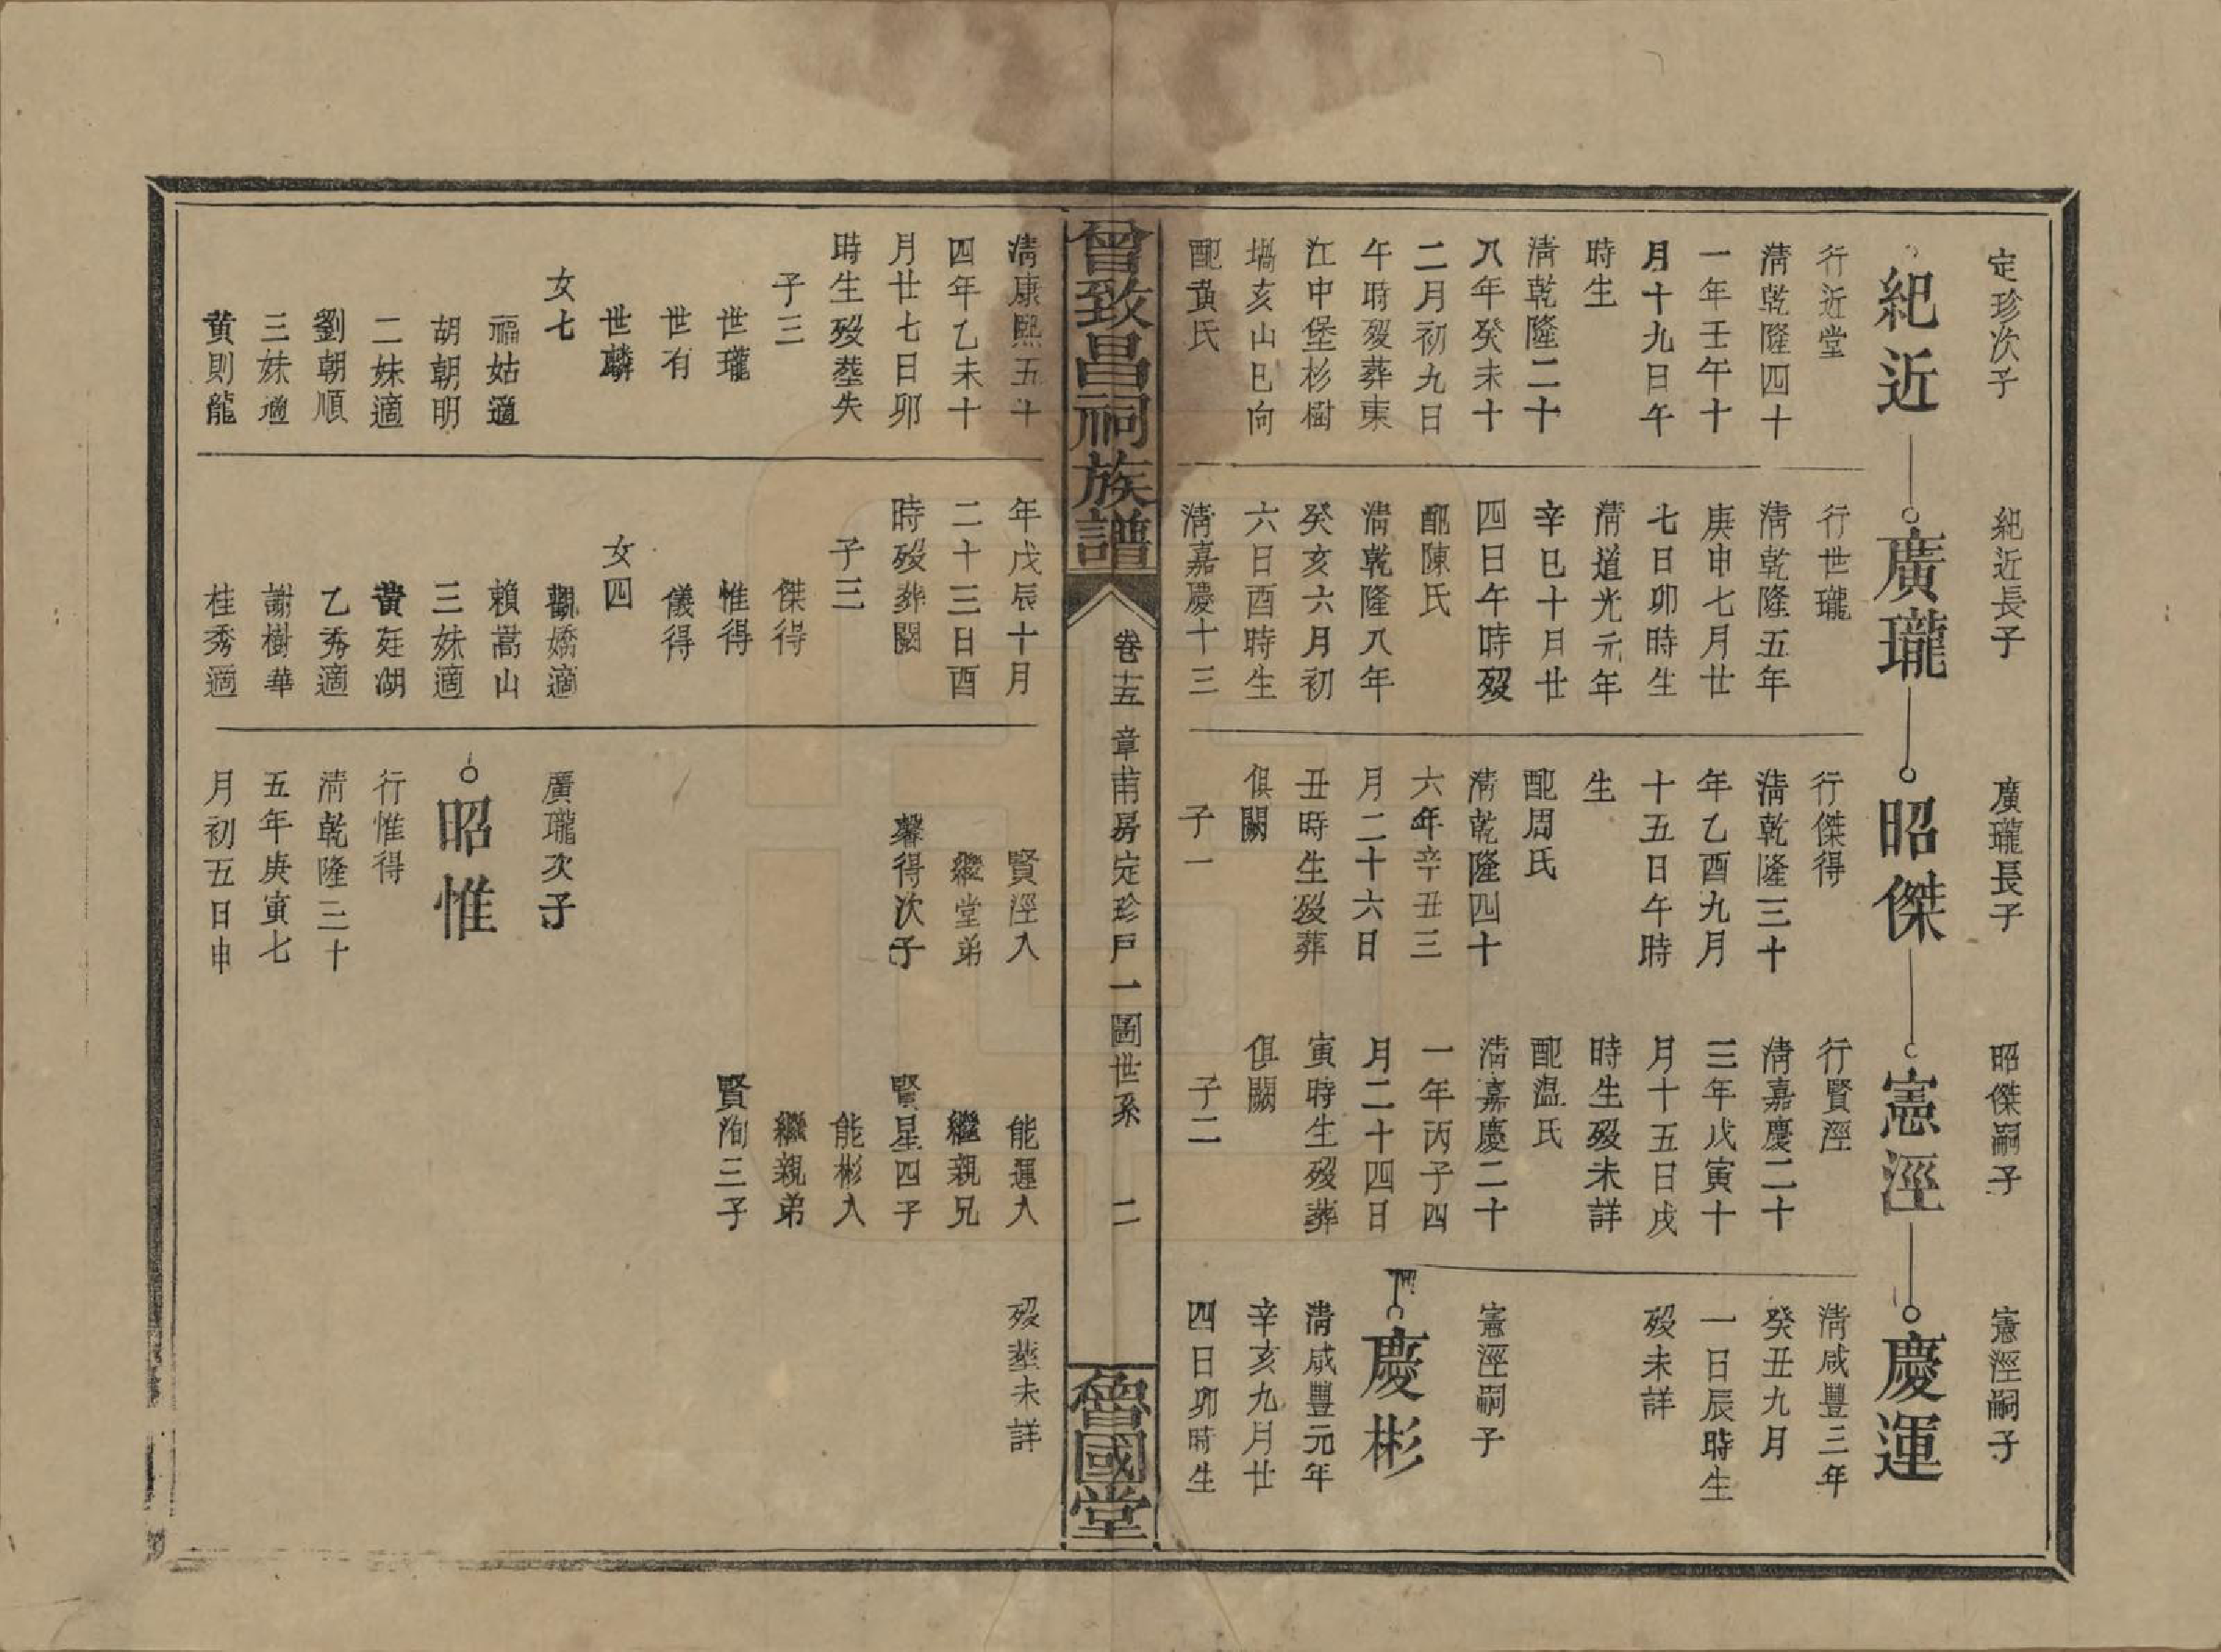 定珍次子
紀近
行近堂
清乾隆四十
一年壬午十
月十九日午
時生
清乾隆二十
八年癸未十
二月初九日
午時歿葬東
江中堡杉樹
堝亥山巳向
配黄氏
紀近長子
廣瓏
行世瓏
清乾隆五年
庚申七月廿
七日卯時生
清道光元年
辛巳十月廿
四日午時歿
配陳氏
清乾隆八年
癸亥六月初
六日酉時生
清嘉慶十三
廣瓏長子
昭傑
行傑得
清乾隆三十
年乙酉九月
十五日午時
生
配周氏
清乾隆四十
六年辛丑三
月二十六日
丑時生歿葬
俱闕
子一
昭傑嗣子
憲涇
行賢涇
清嘉慶二十
三年戊寅十
月十五日戌
時生歿未詳
配温氏
清嘉慶二十
一年丙子四
月二十四日
寅時生歿葬
俱闕
子二
憲涇嗣子
慶運
清咸豐三年
癸丑九月
一日辰時生
歿未詳
憲涇嗣子
慶彬
清咸豐元年
辛亥九月廿
四日卯時生
曾致昌祠族譜
卷十五
章甫房定珍戶一圖世系
二
魯國堂
清康熙五十
四年乙未十
月廿七日卯
時生歿塟失
子三
世瓏
世有
世麟
女七
福姑適
胡朝明
二妹適
劉朝順
三妹適
黄則龍
年戊辰十月
二十三日酉
時歿葬闕
子三
傑得
惟得
儀得
女四
觀嬌適
賴嵩山
三妹適
黄廷湖
乙秀適
謝樹華
桂秀適
賢涇入
繼堂弟
馨得次子
廣瓏次子
昭惟
行惟得
清乾隆三十
五年庚寅七
月初五日申
能運入
繼親兄
賢星四子
能彬入
繼親弟
賢洵三子
歿塟未詳